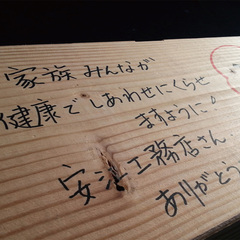 家族みんなが
健康でしあわせにくらせ
ますように！
安江工務店さん
ありがとう